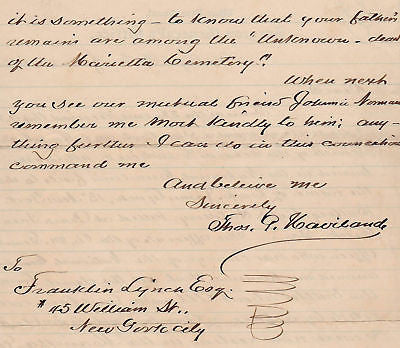 it is something – to know that your father's
remains are among the "Unknown – dead
of the Marietta Cemetery".
When next
you see our mutual friend Johnnie Norman
remember me most kindly to him; any-
thing further I can do in this connection
command me
And believe me
Sincerely
Thos. P. Haviland
To
Franklin Lynch Esq.
45 William St.,
New York City